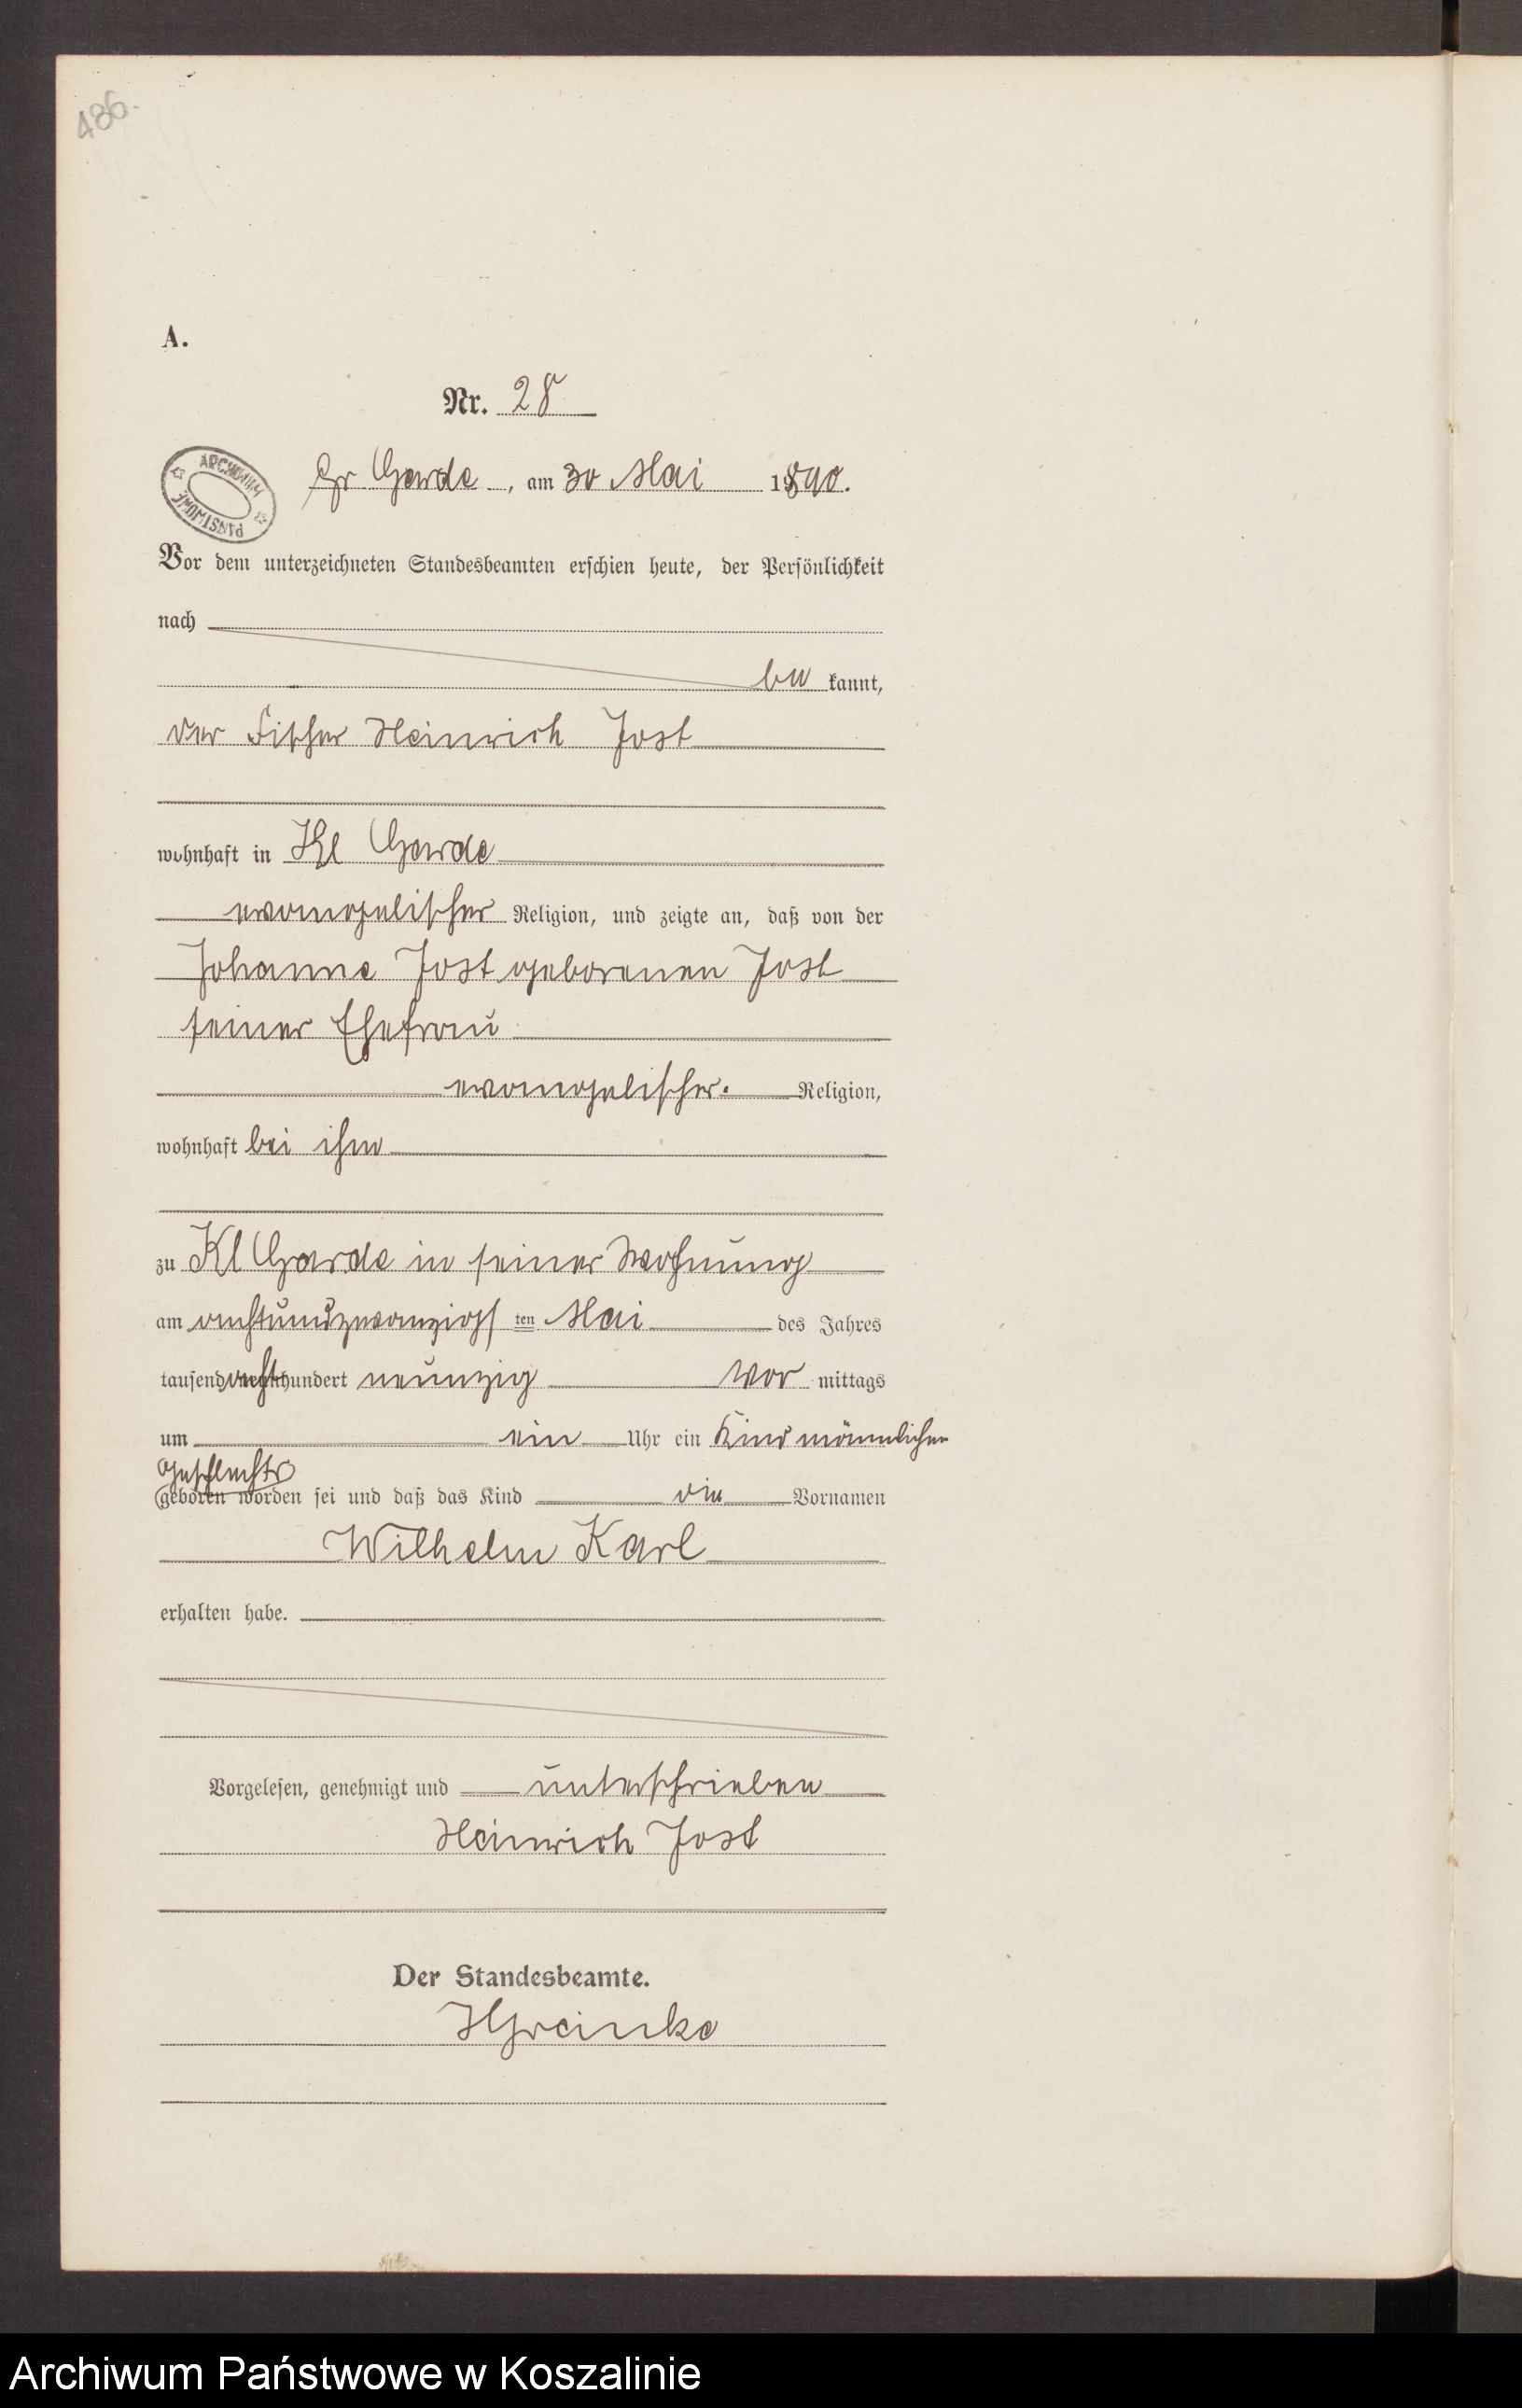 486.
A.
Nr. 28
ARCHIWUM PAŃSTWOWE
Gr Garde, am 30 Mai 1890.
Vor dem unterzeichneten Standesbeamten erschien heute, der Persönlichkeit
nach
be kannt,
der Fischer Heinrich Jost
wohnhaft in Kl Garde
evangelischer Religion, und zeigte an, daß von der
Johanne Jost geborenen Jost
seiner Ehefrau
evangelischer Religion,
wohnhaft bei ihm
zu Kl Garde in seiner Wohnung
am achtundzwanzigs ten Mai des Jahres
tausend acht hundert neunzig Vor mittags
um ein Uhr ein Kind männlichen
Geschlechts
geboren worden sei und daß das Kind die Vornamen
Wilhelm Karl
erhalten habe.
Vorgelesen, genehmigt und unterschrieben
Heinrich Jost
Der Standesbeamte.
Archiwum Państwowe w Koszalinie